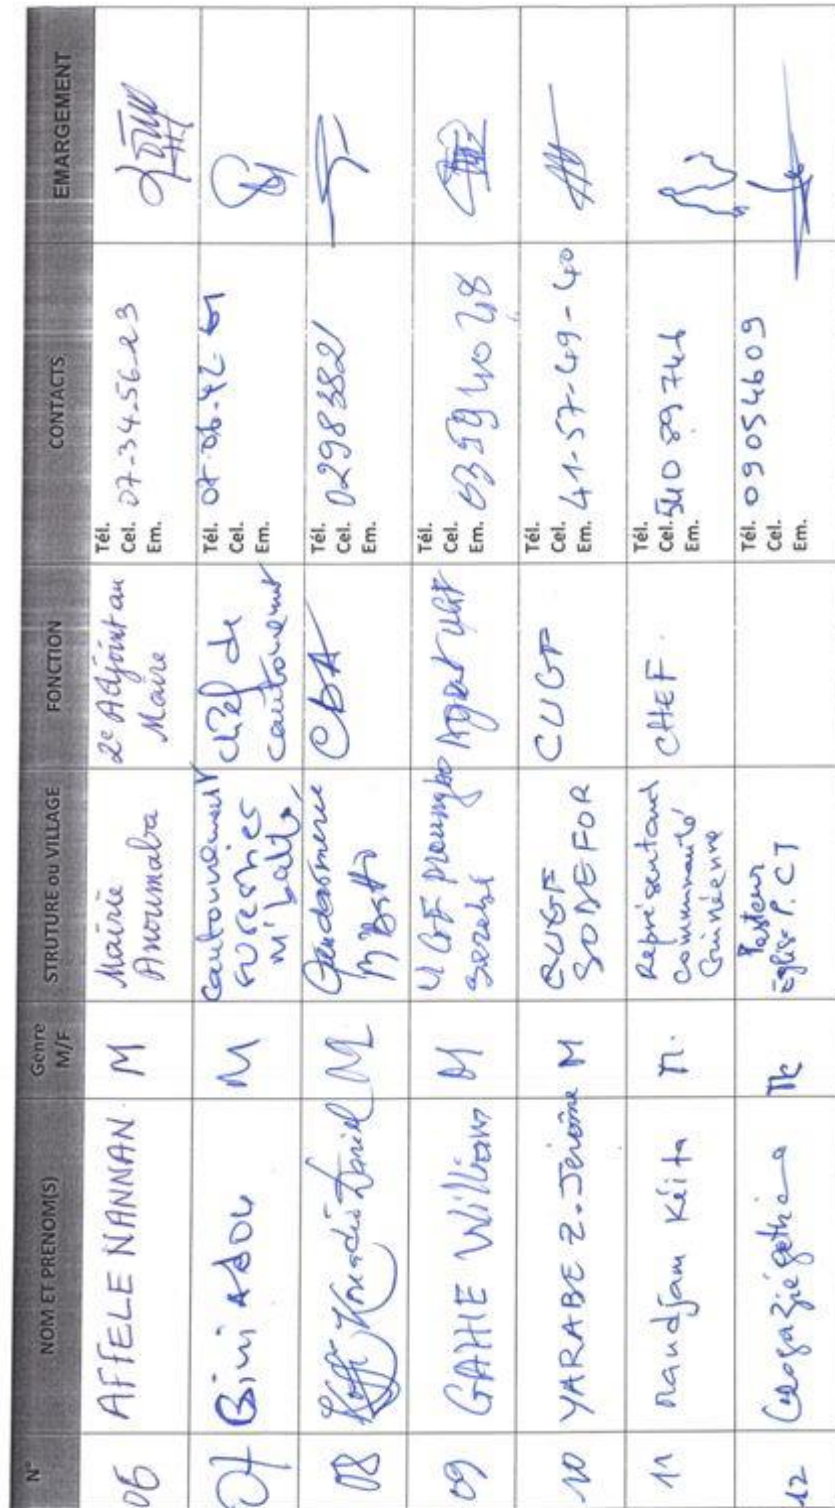 N° NOM ET PRENOM(S) Genre M/F STRUTURE OU VILLAGE FONCTION CONTACTS EMARGEMENT
06 AFFELE NANNAN. M Mairie Anoumaba 2e Adjoint au Maire Tél. Cel. 07-34-56-23 Em.
07 Bini ADOU M Cantonnement M'batto chef de cantonnement Tél. 07-06-42-61 Cel. Em.
08 Koffi Kouadio Daniel M Gendarmerie M'Batto CDA Tél. Cel. 02983821 Em.
09 GAHIE William M UGF Agent UGF Tél. Cel. 03594028 Em.
10 YARABE Z. Jérôme M CUGF SODEFOR CUGF Tél. 41-57-49-40 Cel. Em.
11 Mandjam Kéita M. Représentant Communauté Guinéenne CHEF. Tél. Cel. 54089746 Em.
12 M Pasteur Église P.CI Tél. 09054609 Cel. Em.